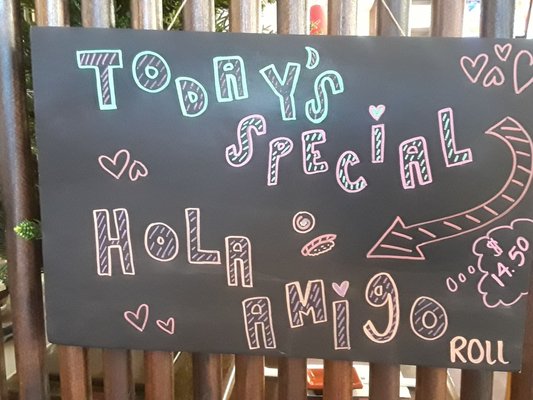 TODAY'S
SPECIAL
HOLA
$ 14.50
AMIgO
ROLL